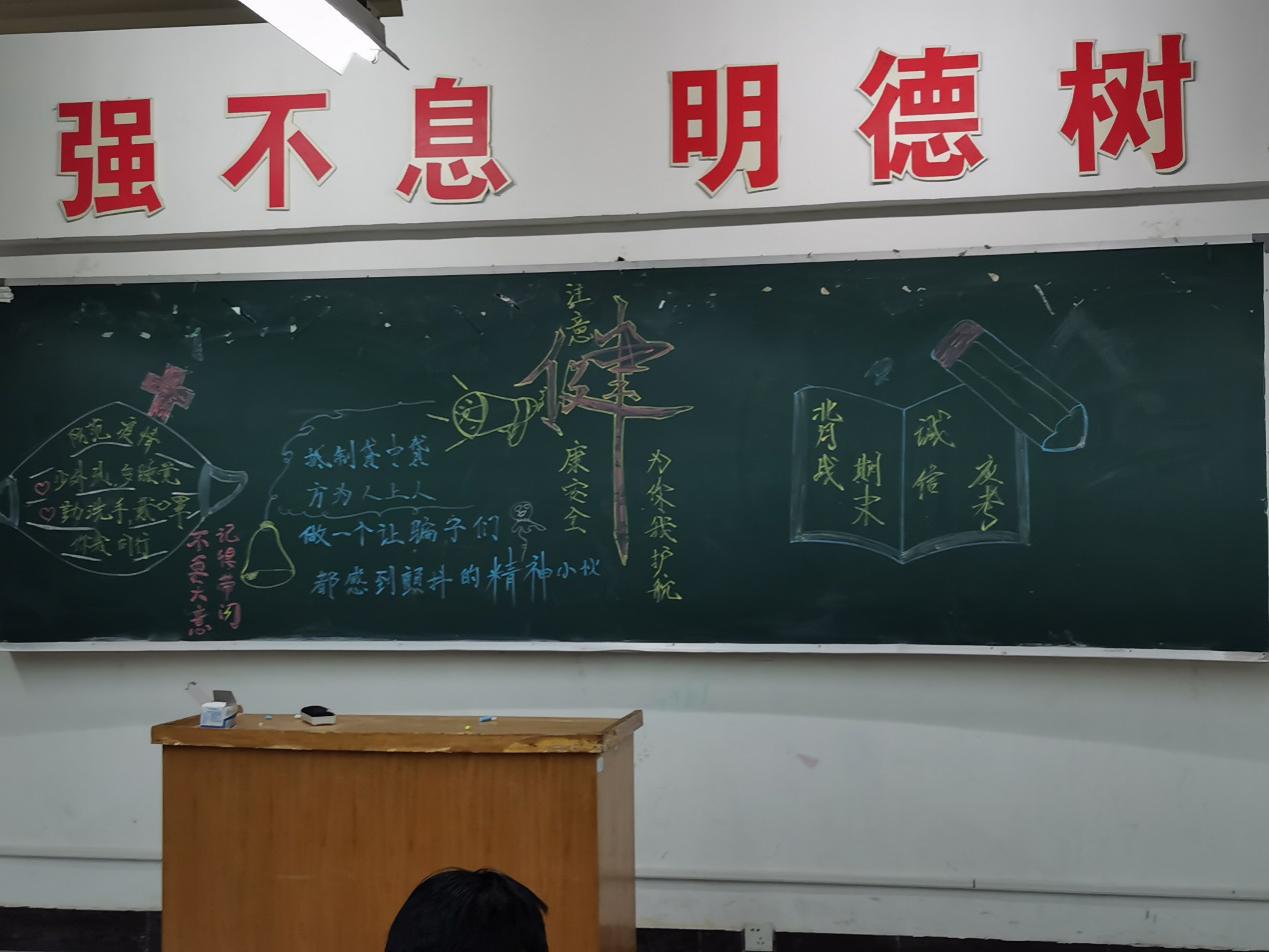 强不息 明德树
防范疫情
少外出
勤洗手,戴口罩
记得带闪
不要大意
抵制贷中贷
方为人上人
做一个让骗子们
都感到颤抖的精神小伙
注意
健
康安全
为你我护航
背战
期末
诚信
应考